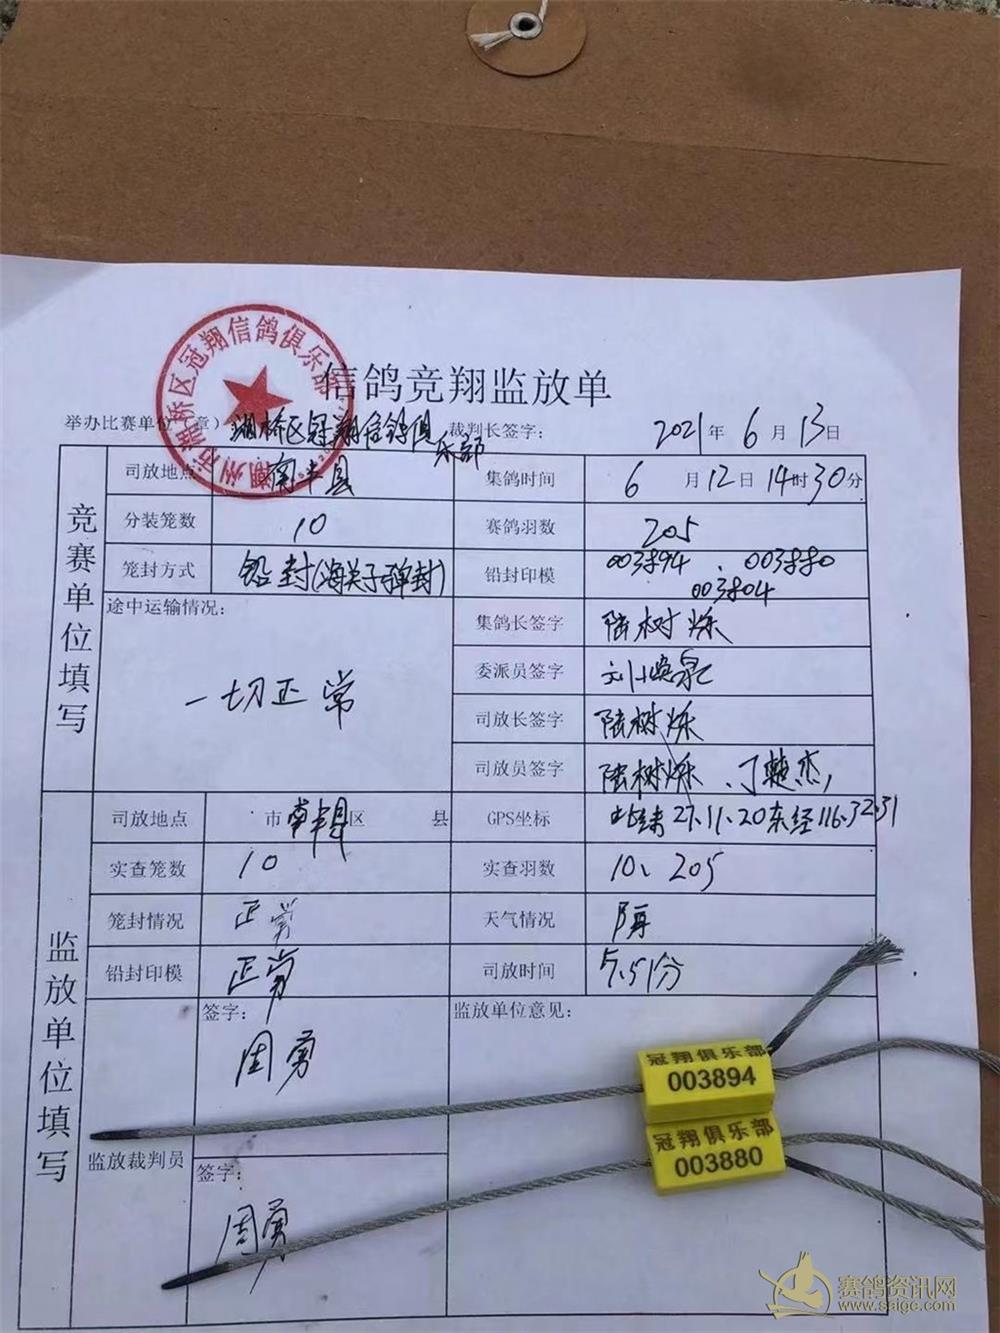 潮州市湘桥区冠翔信鸽俱乐部
信鸽竞翔监放单
举办比赛单位(章) 湘桥区冠翔信鸽俱乐部 裁判长签字: 2021年6月13日
竞赛单位填写
司放地点 南丰县 集鸽时间 6月12日14时30分
分装笼数 10 赛鸽羽数 205
笼封方式 铅封(海关子弹封) 铅封印模 003894、003880
003804
途中运输情况: 一切正常
集鸽长签字 陆树烁
委派员签字 刘焕泉
司放长签字 陆树烁
司放员签字 陆树烁、丁楚杰
监放单位填写
司放地点 市南丰县区 县 GPS坐标 北纬27.11.20东经116.32.31
实查笼数 10 实查羽数 10、205
笼封情况 正常 天气情况 阴
铅封印模 正常 司放时间 5.51分
监放裁判员
签字: 周勇
签字: 周勇
监放单位意见:
冠翔俱乐部
003894
冠翔俱乐部
003880
赛鸽资讯网
www.saigc.com